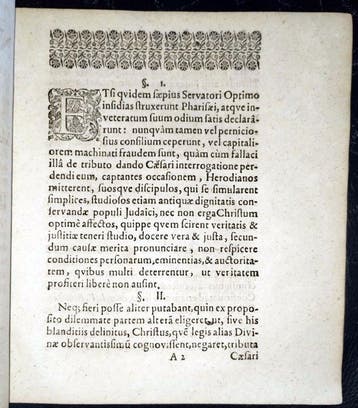 §. I.
ETsi qvidem sæpius Servatori Optimo
insidias struxerunt Pharisæi, atqve in-
veteratum suum odium satis declarâ-
runt: nunqvàm tamen vel pernicio-
sius consilium ceperunt, vel capitali-
orem machinati fraudem sunt, quàm cùm fallaci
illâ de tributo dando Cæsari interrogatione per-
dendi eum, captantes occasionem, Herodianos
mitterent, suosqve discipulos, qui se simularent
simplices, studiosos etiam antiquæ dignitatis con-
servandæ populi Judaici, nec non erga Christum
optimè affectos, quippe qvem scirent veritatis &
justitiæ teneri studio, docere vera & justa, secun-
dum causæ merita pronunciare, non respicere
conditiones personarum, eminentias, & auctorita-
tem, qvibus multi deterrentur, ut veritatem
profiteri liberè non ausint.
§. II.
Neq; fieri posse aliter putabant, quin ex propo-
sito dilemmate partem alterâ eligeret, ut, sive his
blanditiis delinitus, Christus, qvê legis alias Divi-
næ observantissimû cognovissent, negaret, tributa
A 2 Cæsari